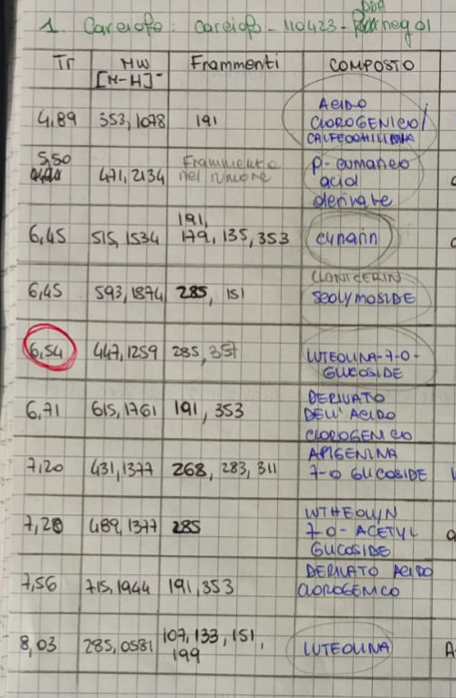 1. Carciofo: carciofo - 110423 - DDA neg 01
Tr MW Frammenti COMPOSTO
[M-H]-
4,89 353,1078 191 ACIDO CLOROGENICO/
5,50 471,2134 Frammento nel rumore p-cumaric acid derivate
6,45 515,1534 191, 179, 135, 353 cynarin
6,45 593,1874 285, 151 LONICERIN SCOLYMOSIDE
6,54 447,1259 285, 357 LUTEOLINA-7-O-GLUCOSIDE
6,71 615,1761 191, 353 DERIVATO DELL'ACIDO CLOROGENICO
7,20 431,1377 268, 283, 311 APIGENINA 7-O GLUCOSIDE
7,28 489,1377 285 7-O-ACETYL GLUCOSIDE
7,56 715,1944 191,353 DERIVATO ACIDO CLOROGENICO
8,03 285,0581 107, 133, 151, 199 LUTEOLINA